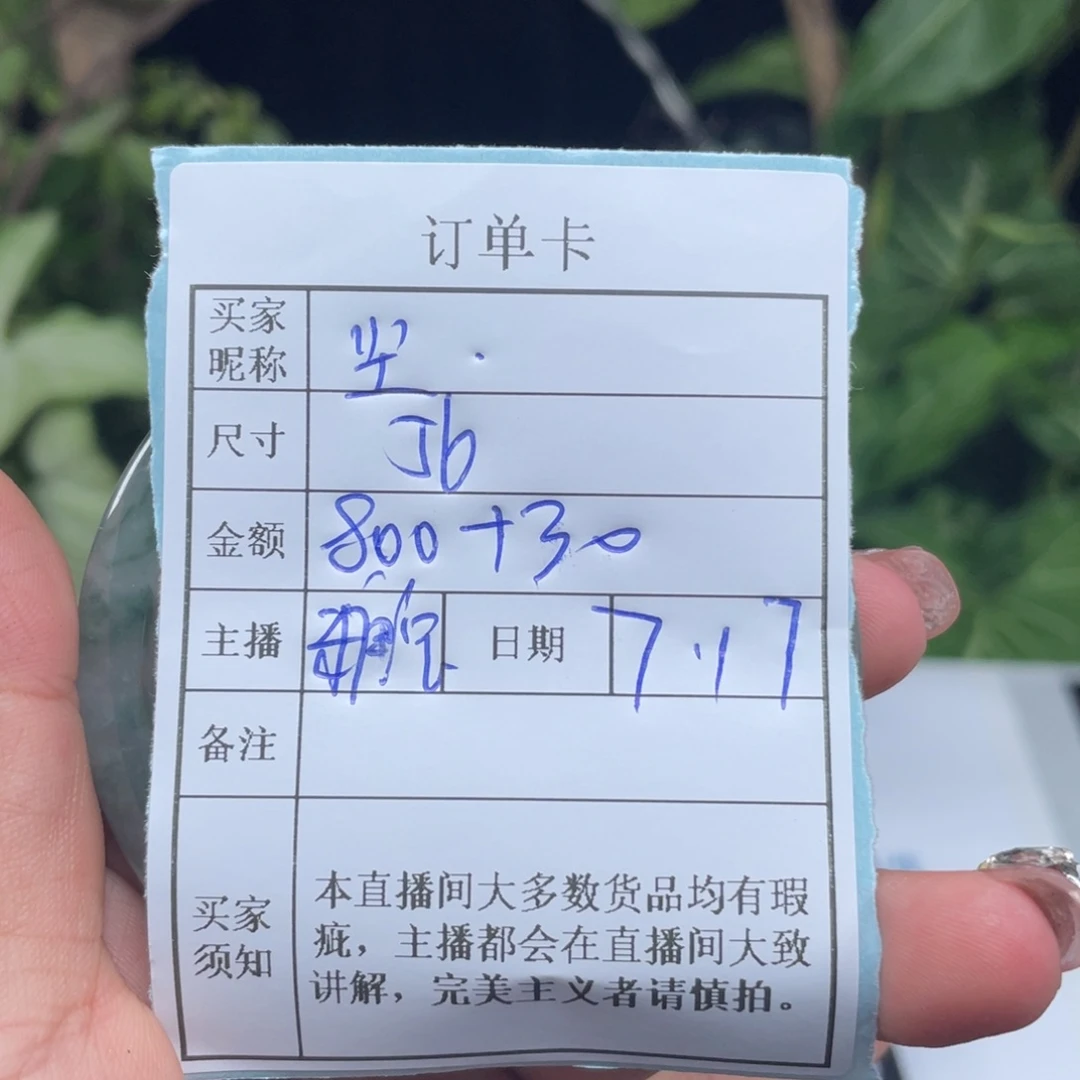 订单卡
买家昵称
尺寸 56
金额 800+30
主播 日期 7.17
备注
买家须知
本直播间大多数货品均有瑕
疵，主播都会在直播间大致
讲解，完美主义者请慎拍。